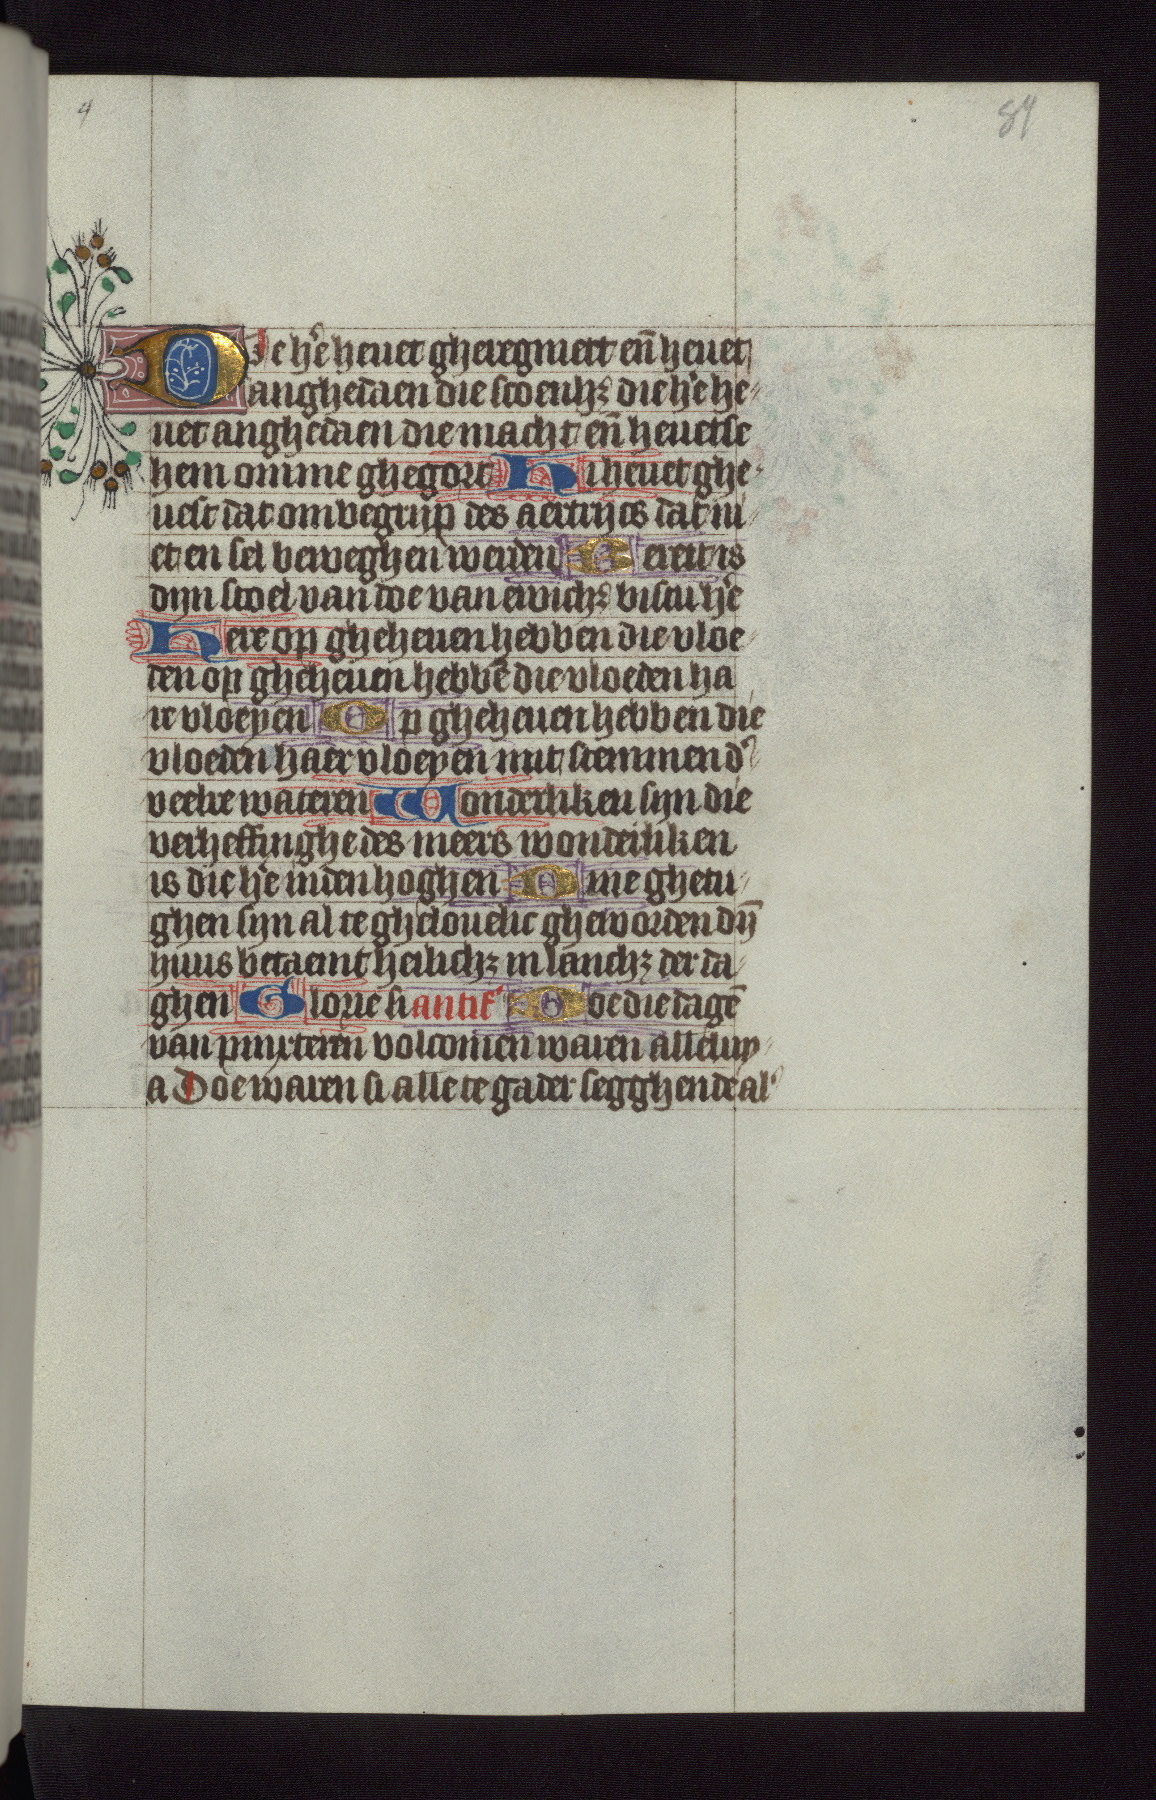 84
Die h'e heuet gheregniert eñ heuet
anghedaen die scoenhz die h'e he
uet anghedaen die macht eñ heuetse
hem omme ghegort Hi heuet ghe
uest dat ombegrijp des aertrijcs dat ni
et en sel beweghen werden Bereit is
dijn stoel van doe van ewichz bistu h'e
Here op gheheuen hebben die vloe
den op gheheuen hebbē die vloeden ha
re vloeyen Op gheheuen hebben die
vloeden haer vloeyen mit stemmen d'
veelre wateren Wonderliken sijn die
verheffinghe des meers wonderliken
is die h'e inden hoghen Dine ghetu
ghen sijn al te ghelouelic gheworden dijn̄
huus betaemt heilichz in lanchz der da
ghen Glorie si antif' Doe die dagē
van pinxteren volcomen waren alleluy
a Doe waren si alle te gader segghende al'